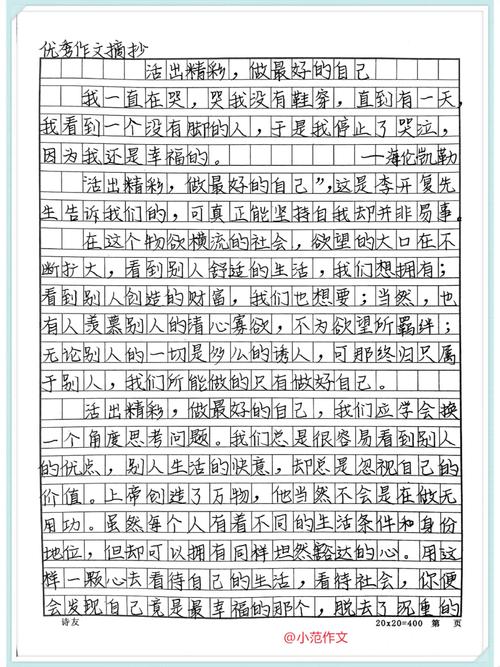 优秀作文摘抄
活出精彩，做最好的自己
我一直在哭，哭我没有鞋穿，直到有一天，
我看到一个没有脚的人，于是我停止了哭泣，
因为我还是幸福的。——海伦凯勒
活出精彩，做最好的自己”，这是李开复先
生告诉我们的，可真正能坚持自我却并非易事。
在这个物欲横流的社会，欲望的大口在不
断扩大，看到别人舒适的生活，我们想拥有；
看到别人创造的财富，我们也想要；当然，也
有人羡慕别人的清心寡欲，不为欲望所羁绊；
无论别人的一切是多么的诱人，可那终归只属
于别人，我们所能做的只有做好自己。
活出精彩，做最好的自己，我们应学会换
一个角度思考问题。我们总是很容易看到别人
的优点，别人生活的快意，却总是忽视自己的
价值。上帝创造了万物，他当然不会是在做无
用功。虽然每个人有着不同的生活条件和身份
地位，但却可以拥有同样坦然豁达的心。用这
样一颗心去看待自己的生活，看待社会，你便
会发现自己竟是最幸福的那个，脱去了沉重的
诗友 20x20=400 第 页
@小范作文